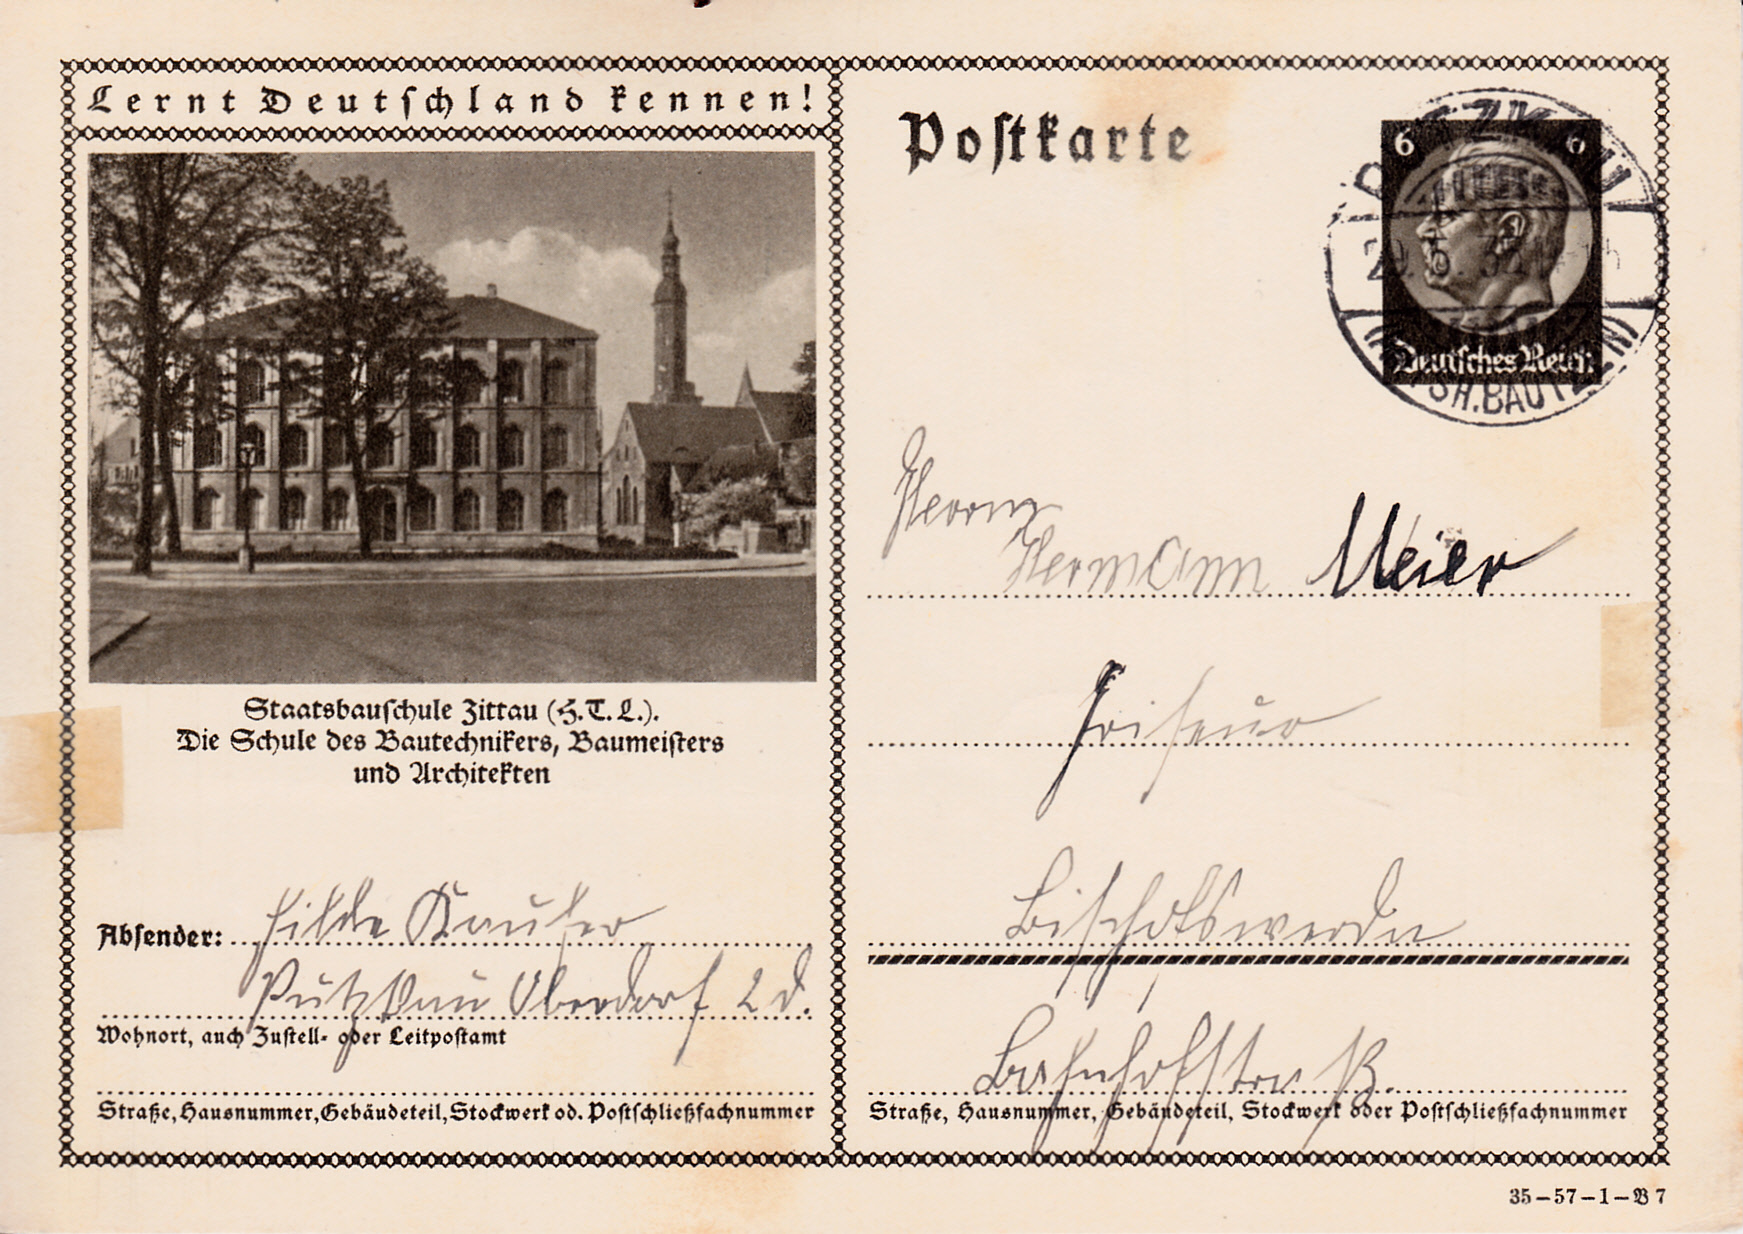 Lernt Deutschland kennen!
Staatsbauschule Zittau (H.T.L.).
Die Schule des Bautechnikers, Baumeisters
und Architekten
Absender: Hilde Käufer
Putzkau Oberdorf 2 d.
Wohnort, auch Zustell- oder Leitpostamt
Straße, Hausnummer, Gebäudeteil, Stockwerk od. Postschließfachnummer
Postkarte
6 6
Deutsches Reich
Herrn
Hermann Meier
Friseur
Bischofswerda
Bahnhofstraß.
Straße, Hausnummer, Gebäudeteil, Stockwerk oder Postschließfachnummer
35-57-1-B7